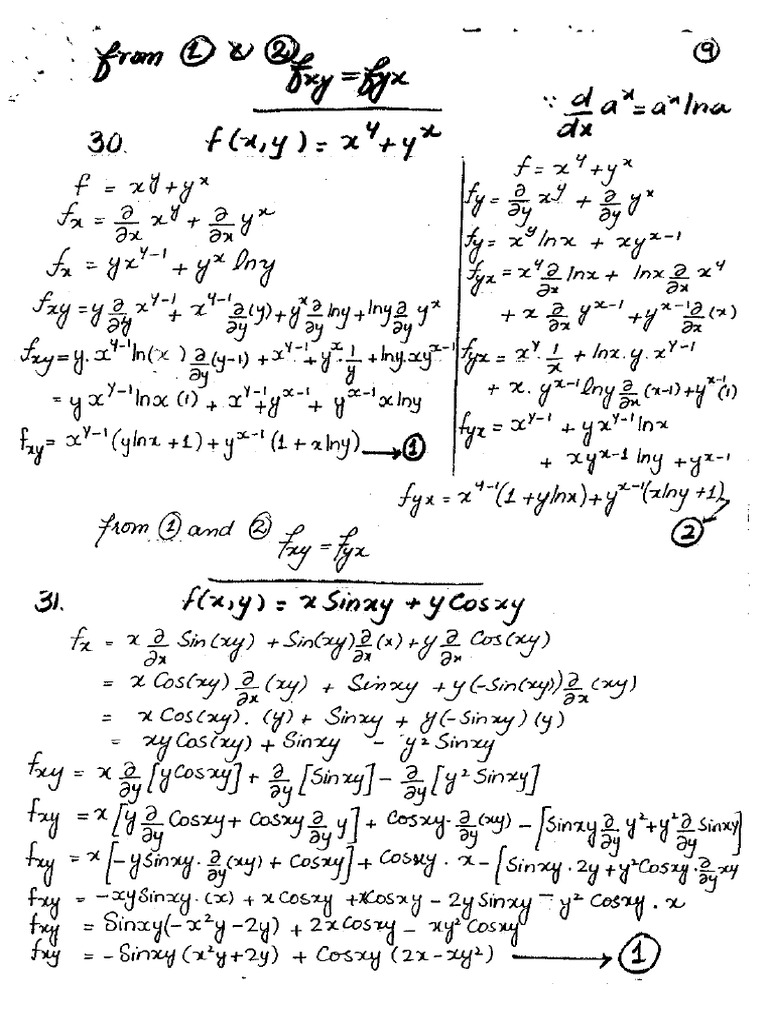 from ① & ②
fxy = fyx
⑨
∵ d/dx aˣ = aˣ lna
30. f(x,y) = x^y + y^x
f = x^y + y^x
fx = ∂/∂x x^y + ∂/∂x y^x
fx = yx^(y-1) + y^x lny
fxy = y ∂/∂y x^(y-1) + x^(y-1) ∂/∂y (y) + y^x ∂/∂y lny + lny ∂/∂y y^x
fxy = y. x^(y-1) ln(x) ∂/∂y (y-1) + x^(y-1) + y^x . 1/y + lny. xy^(x-1)
= y x^(y-1) lnx (1) + x^(y-1) + y^(x-1) + y^(x-1) x lny
fxy = x^(y-1) (ylnx + 1) + y^(x-1) (1 + x lny) → ①
f = x^y + y^x
fy = ∂/∂y x^y + ∂/∂y y^x
fy = x^y lnx + xy^(x-1)
fyx = x^y ∂/∂x lnx + lnx ∂/∂x x^y
+ x ∂/∂x y^(x-1) + y^(x-1) ∂/∂x (x)
fyx = x^y . 1/x + lnx. y. x^(y-1)
+ x. y^(x-1) lny ∂/∂x (x-1) + y^(x-1) (1)
fyx = x^(y-1) + yx^(y-1) lnx
+ xy^(x-1) lny + y^(x-1)
fyx = x^(y-1) (1 + ylnx) + y^(x-1) (xlny + 1)
②
from ① and ② fxy = fyx
31. f(x,y) = x Sinxy + y Cosxy
fx = x ∂/∂x Sin(xy) + Sin(xy) ∂/∂x (x) + y ∂/∂x Cos(xy)
= x Cos(xy) ∂/∂x (xy) + Sinxy + y(-Sin(xy)) ∂/∂x (xy)
= x Cos(xy). (y) + Sinxy + y(-Sinxy) (y)
= xy Cos(xy) + Sinxy - y² Sinxy
fxy = x ∂/∂y [yCosxy] + ∂/∂y [Sinxy] - ∂/∂y [y² Sinxy]
fxy = x [y ∂/∂y Cosxy + Cosxy ∂/∂y y] + Cosxy. ∂/∂y (xy) - [Sinxy ∂/∂y y² + y² ∂/∂y Sinxy]
fxy = x [-ySinxy. ∂/∂y (xy) + Cosxy] + Cosxy. x - [Sinxy. 2y + y² Cosxy. ∂/∂y xy
fxy = -xySinxy. (x) + x Cosxy + xCosxy - 2y Sinxy - y² Cosxy. x
fxy = Sinxy(-x²y - 2y) + 2x Cosxy - xy² Cosxy
fxy = -Sinxy (x²y + 2y) + Cosxy (2x - xy²) → ①